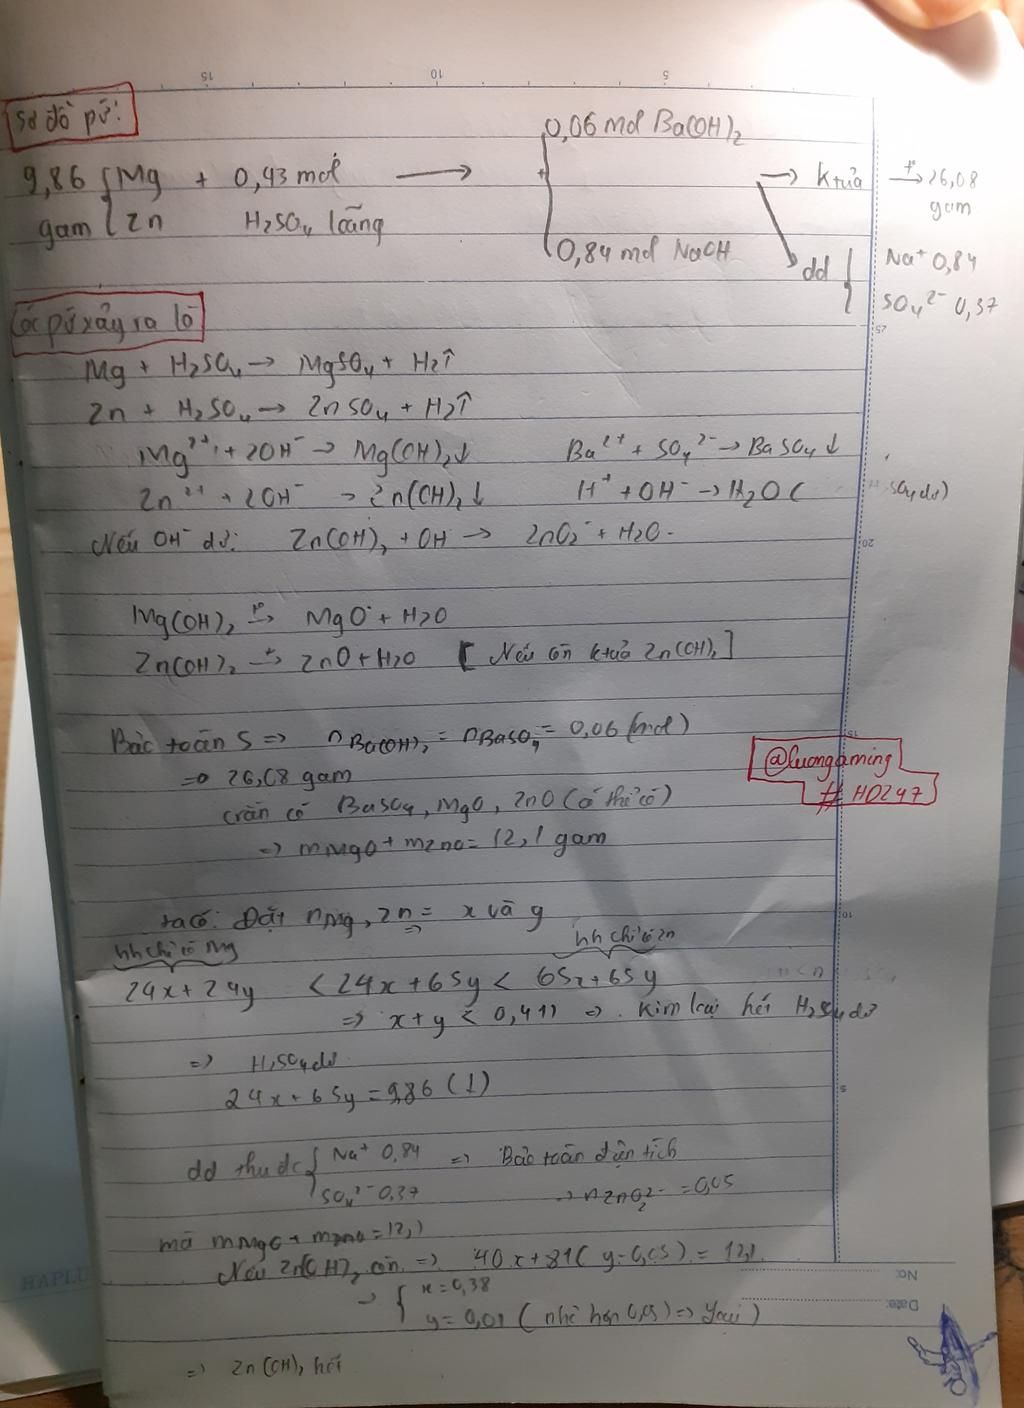 Sơ đồ pứ:
9,86 gam { Mg Zn + 0,43 mol H2SO4 loãng → + { 0,06 mol Ba(OH)2 0,84 mol NaOH → k tủa t° → 26,08 gam
dd { Na+ 0,84 SO4 2- 0,37
Các pứ xảy ra là
Mg + H2SO4 → MgSO4 + H2↑
Zn + H2SO4 → ZnSO4 + H2↑
Mg2+ + 2OH- → Mg(OH)2↓ Ba2+ + SO4 2- → BaSO4↓
Zn2+ + 2OH- → Zn(OH)2↓ H+ + OH- → H2O ( H2SO4 dư)
Nếu OH- dư: Zn(OH)2 + OH- → ZnO2- + H2O.
Mg(OH)2 t° → MgO + H2O
Zn(OH)2 t° → ZnO + H2O [ Nếu còn k tủa Zn(OH)2 ]
Bảo toàn S => nBa(OH)2 = nBaSO4 = 0,06 (mol)
=> 26,08 gam
@luongaming
rắn có BaSO4, MgO, ZnO (có thể có)
# HD247
=> mMgO + mZnO = 12,1 gam
ta có: Đặt nMg, Zn = x và y
hh chỉ có Mg hh chỉ có Zn
24x + 24y < 24x + 65y < 65x + 65y
=> x + y < 0,411 => Kim loại hết H2SO4 dư
=> H2SO4 dư
24x + 65y = 9,86 (1)
dd thu đc { Na+ 0,84 SO4 2- 0,37 => Bảo toàn điện tích
→ nZnO2 2- = 0,05
mà mMgO + mZnO = 12,1
Nếu Zn(OH)2 còn => 40x + 81(y-0,05) = 12,1
→ { x = 0,38
y = 0,01 ( nhỏ hơn 0,05 => loại )
=> Zn(OH)2 hết
HAPLU
No:
Date:
15
10
5
25
20
15
10
5